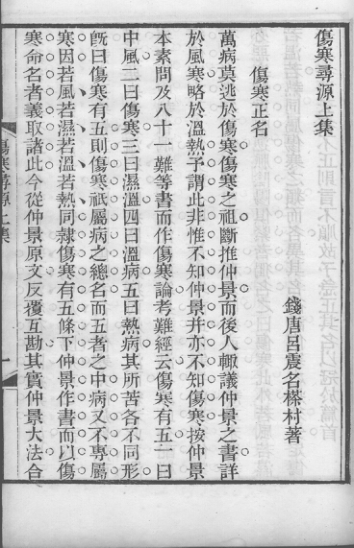 傷寒尋源上集
錢唐呂震名㮣村著
傷寒正名
萬病莫逃於傷寒傷寒之祖斷推仲景而後人輙議仲景之書詳
於風寒略於溫熱予謂此非惟不知仲景幷亦不知傷寒按仲景
本素問及八十一難等書而作傷寒論考難經云傷寒有五一曰
中風二曰傷寒三曰濕溫四曰溫病五曰熱病其所苦各不同形
旣曰傷寒有五則傷寒祇屬病之總名而五者之中病又不專屬
寒因若風若濕若溫若熱同隸傷寒有五條下仲景作書而以傷
寒命名者義取諸此今從仲景原文反覆互勘其實仲景大法合
傷寒尋源上集
一